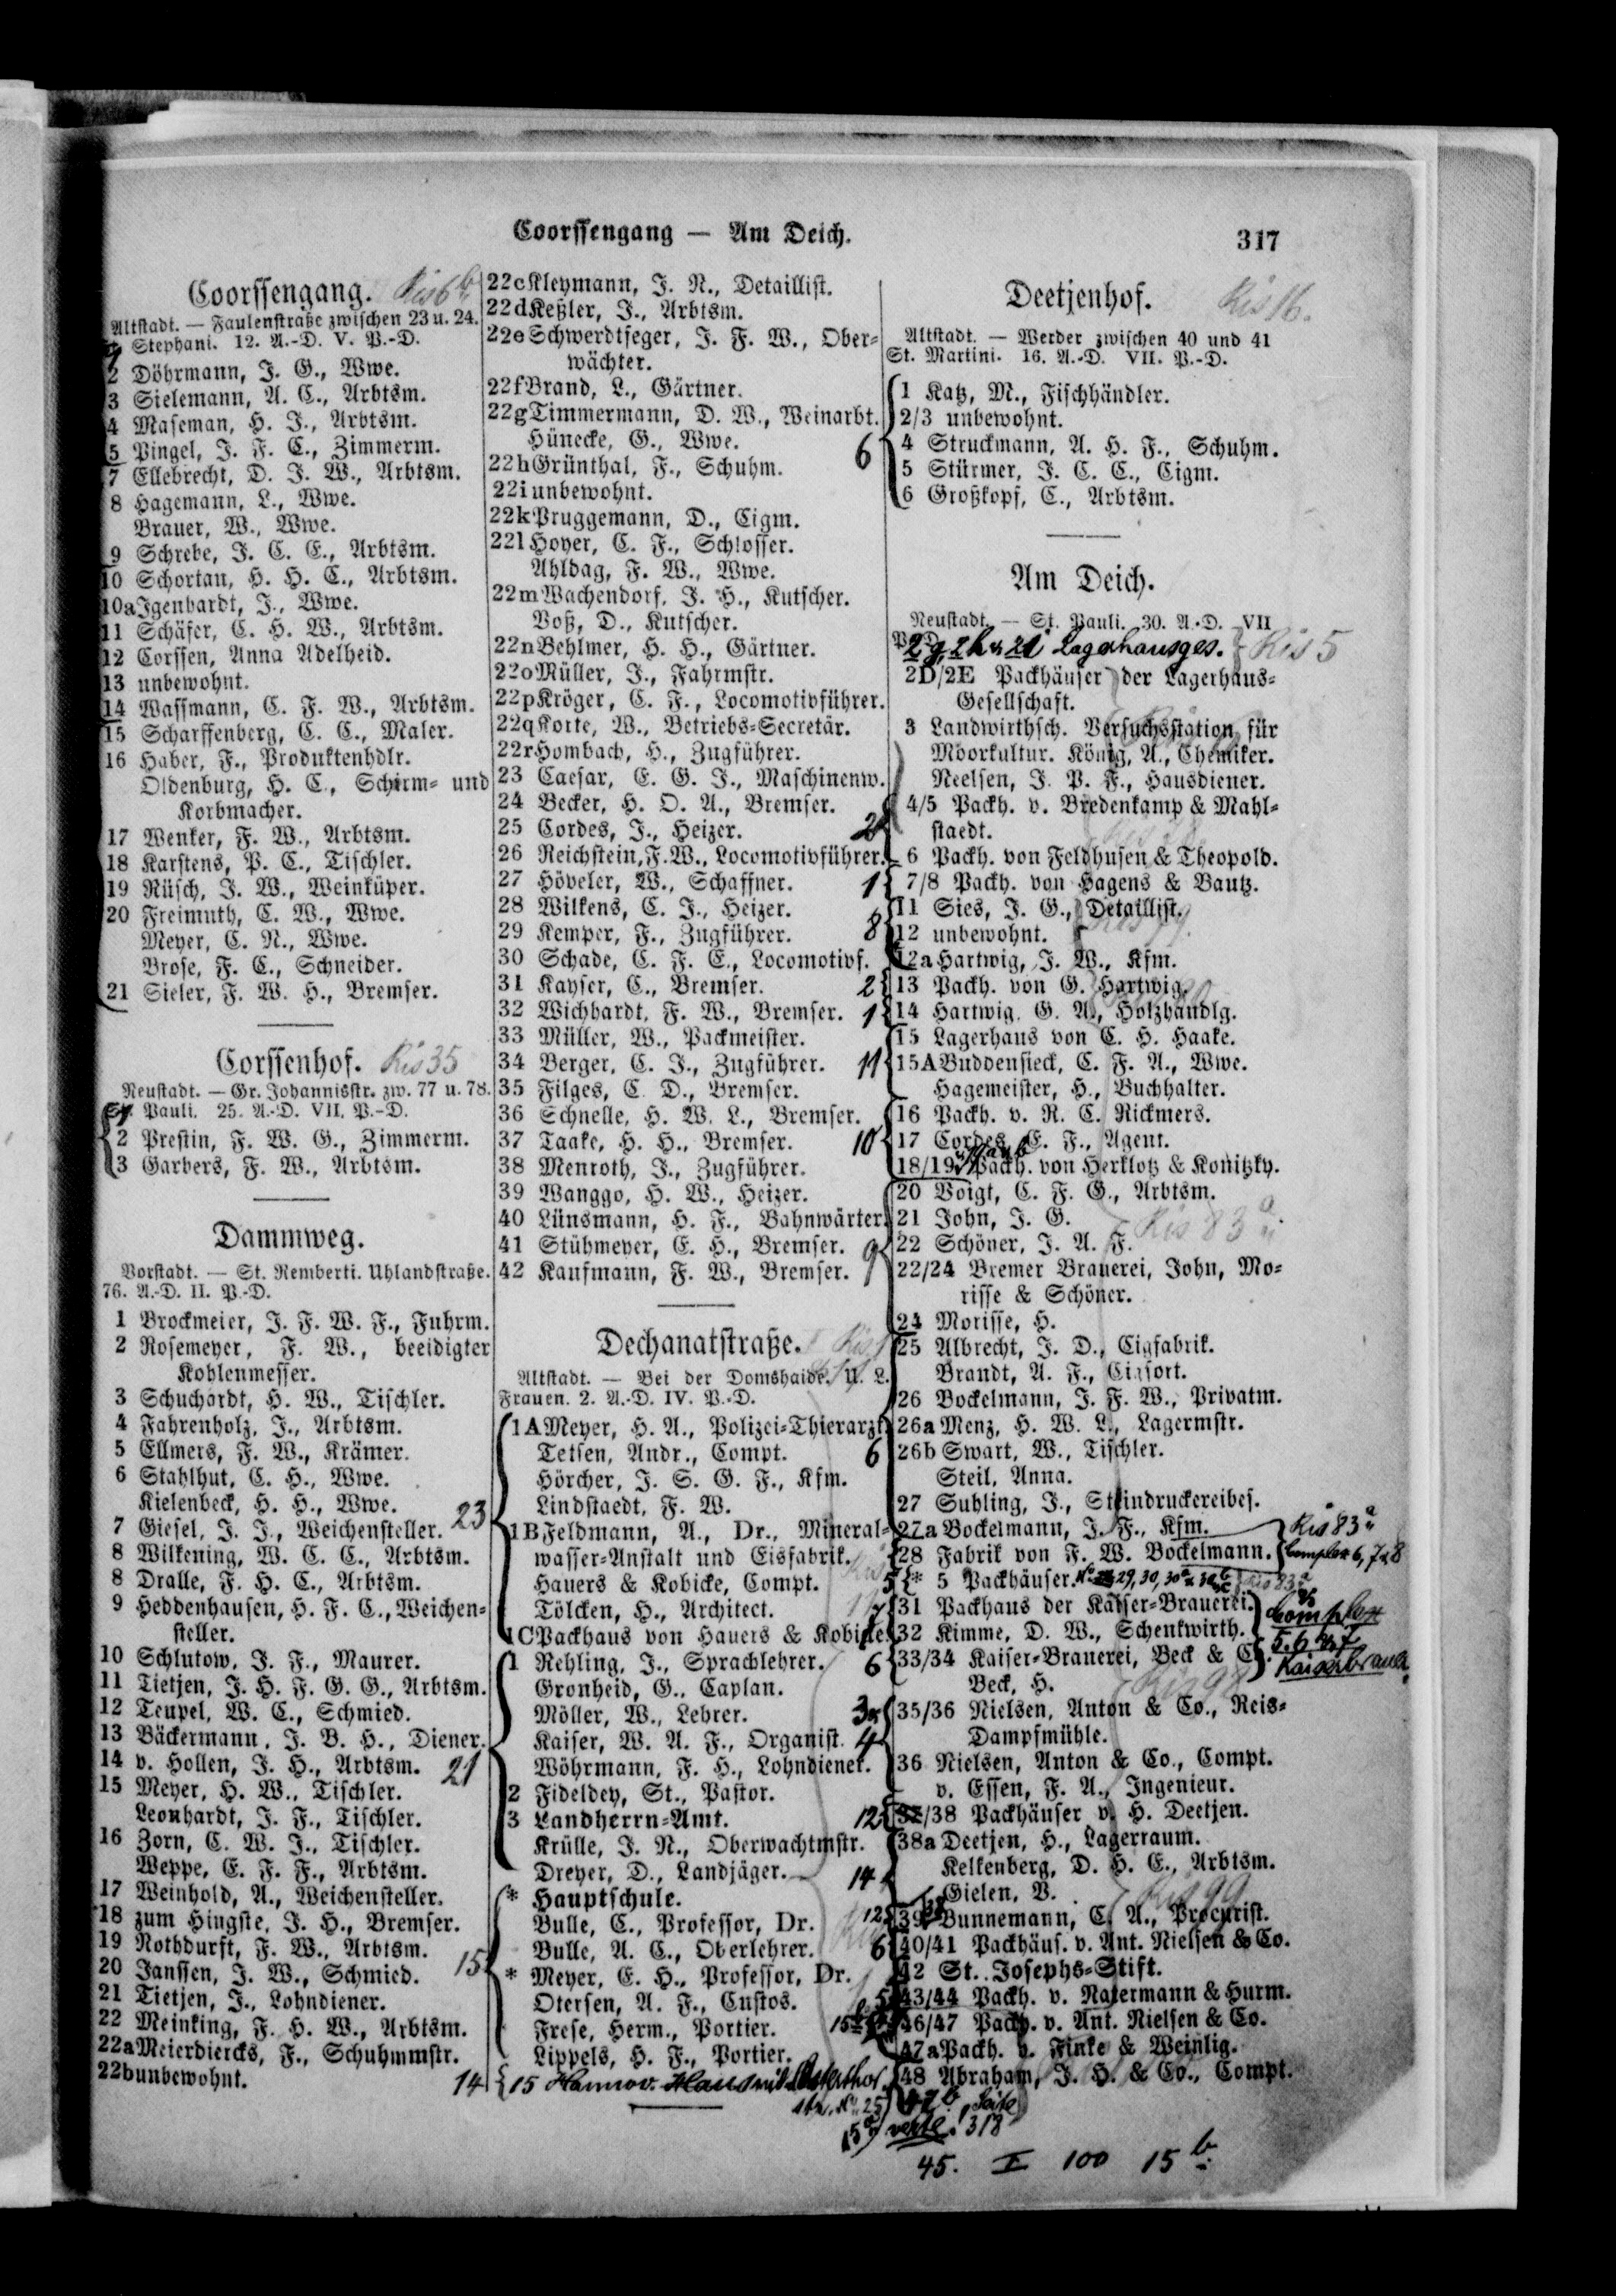 Coorssengang — Am Deich.
317
Coorssengang. Ris 6 b
Altstadt. — Faulenstraße zwischen 23 u. 24.
Stephani. 12. A.-D. V. P.-D.
2 Döhrmann, J. G., Wwe.
3 Sielemann, A. C., Arbtsm.
4 Maseman, H. J., Arbtsm.
5 Pingel, J. F. C., Zimmerm.
7 Ellebrecht, D. J. W., Arbtsm.
8 Hagemann, L., Wwe.
Brauer, W., Wwe.
9 Schrebe, J. C. E., Arbtsm.
10 Schortau, H. H. C., Arbtsm.
10a Igenhardt, J., Wwe.
11 Schäfer, C. H. W., Arbtsm.
12 Corssen, Anna Adelheid.
13 unbewohnt.
14 Wassmann, C. F. W., Arbtsm.
15 Scharffenberg, C. C., Maler.
16 Haber, F., Produktenhdlr.
Oldenburg, H. C., Schirm= und
Korbmacher.
17 Wenker, F. W., Arbtsm.
18 Karstens, P. C., Tischler.
19 Rüsch, J. W., Weinküper.
20 Freimuth, C. W., Wwe.
Meyer, C. N., Wwe.
Brose, F. C., Schneider.
21 Sieler, F. W. H., Bremser.
Corssenhof. Ris 35
Neustadt. — Gr. Johannisstr. zw. 77 u. 78.
Pauli. 25. A.-D. VII. P.-D.
2 Prestin, F. W. G., Zimmerm.
3 Garbers, F. W., Arbtsm.
Dammweg.
Vorstadt. — St. Remberti. Uhlandstraße.
76. A.-D. II. P.-D.
1 Brockmeier, J. F. W. F., Fuhrm.
2 Rosemeyer, F. W., beeidigter
Kohlenmesser.
3 Schuchardt, H. W., Tischler.
4 Fahrenholz, J., Arbtsm.
5 Ellmers, F. W., Krämer.
6 Stahlhut, C. H., Wwe.
Kielenbeck, H. H., Wwe.
7 Giesel, J. J., Weichensteller.
8 Wilkening, W. C. C., Arbtsm.
8 Dralle, F. H. C., Arbtsm.
9 Heddenhausen, H. F. C., Weichen=
steller.
10 Schlutow, J. F., Maurer.
11 Tietjen, J. H. F. G. G., Arbtsm.
12 Teupel, W. C., Schmied.
13 Bäckermann, J. B. H., Diener.
14 v. Hollen, J. H., Arbtsm.
15 Meyer, H. W., Tischler.
Leonhardt, J. F., Tischler.
16 Zorn, C. W. J., Tischler.
Weppe, E. F. F., Arbtsm.
17 Weinhold, A., Weichensteller.
18 zum Hingste, J. H., Bremser.
19 Nothdurft, F. W., Arbtsm.
20 Janssen, J. W., Schmied.
21 Tietjen, J., Lohndiener.
22 Meinking, F. H. W., Arbtsm.
22a Meierdiercks, F., Schuhmmstr.
22b unbewohnt.
22c Kleymann, J. N., Detaillist.
22d Keßler, J., Arbtsm.
22e Schwerdtfeger, J. F. W., Ober=
wächter.
22f Brand, L., Gärtner.
22g Timmermann, D. W., Weinarbt.
Hünecke, G., Wwe.
22h Grünthal, F., Schuhm.
22i unbewohnt.
22k Pruggemann, D., Cigm.
22l Hoyer, C. F., Schlosser.
Ahldag, F. W., Wwe.
22m Wachendorf, J. H., Kutscher.
Voß, D., Kutscher.
22n Behlmer, H. H., Gärtner.
22o Müller, J., Fahrmstr.
22p Kröger, C. F., Locomotivführer.
22q Korte, W., Betriebs=Secretär.
22r Hombach, H., Zugführer.
23 Caesar, E. G. J., Maschinenw.
24 Becker, H. O. A., Bremser.
25 Cordes, J., Heizer.
26 Reichstein, F. W., Locomotivführer.
27 Höveler, W., Schaffner.
28 Wilkens, C. J., Heizer.
29 Kemper, F., Zugführer.
30 Schade, C. F. E., Locomotivf.
31 Kayser, C., Bremser.
32 Wichhardt, F. W., Bremser.
33 Müller, W., Packmeister.
34 Berger, C. J., Zugführer.
35 Filges, C. D., Bremser.
36 Schnelle, H. W. L., Bremser.
37 Taake, H. H., Bremser.
38 Menroth, J., Zugführer.
39 Wanggo, H. W., Heizer.
40 Lünsmann, H. F., Bahnwärter.
41 Stühmeyer, E. H., Bremser.
42 Kaufmann, F. W., Bremser.
Dechanatstraße.
Altstadt. — Bei der Domshaide. U. L.
Frauen. 2. A.-D. IV. P.-D.
1A Meyer, H. A., Polizei=Thierarzt.
Tetsen, Andr., Compt.
Hörcher, J. S. G. F., Kfm.
Lindstaedt, F. W.
23 1B Feldmann, A., Dr., Mineral=
wasser=Anstalt und Eisfabrik.
Hauers & Kobicke, Compt.
Tölcken, H., Architect.
1C Packhaus von Hauers & Kobicke.
21 1 Rehling, J., Sprachlehrer.
Gronheid, G., Caplan.
Möller, W., Lehrer.
Kaiser, W. A. F., Organist.
Wöhrmann, F. H., Lohndiener.
2 Fideldey, St., Pastor.
3 Landherrn=Amt.
Krülle, J. N., Oberwachtmstr.
Dreyer, D., Landjäger.
15 * Hauptschule.
Bulle, C., Professor, Dr.
Bulle, A. C., Oberlehrer.
* Meyer, E. H., Professor, Dr.
Otersen, A. F., Custos.
Frese, Herm., Portier.
Lippels, H. F., Portier.
14 15 Hannov. Haus mit Osterthor.
str. No. 25
Deetjenhof. Ris 16.
Altstadt. — Werder zwischen 40 und 41
St. Martini. 16. A.-D. VII. P.-D.
6 1 Katz, M., Fischhändler.
2/3 unbewohnt.
4 Struckmann, A. H. F., Schuhm.
5 Stürmer, J. C. C., Cigm.
6 Großkopf, C., Arbtsm.
Am Deich.
Neustadt. — St. Pauli. 30. A.-D. VII
2g, 2h u 2i Lagerhausges. Ris 5
2D/2E Packhäuser der Lagerhaus=
Gesellschaft.
3 Landwirthsch. Versuchsstation für
Moorkultur. König, A., Chemiker.
Neelsen, J. P. F., Hausdiener.
4/5 Packh. v. Bredenkamp & Mahl=
staedt.
6 Packh. von Feldhusen & Theopold.
1 7/8 Packh. von Hagens & Bautz.
8 11 Sies, J. G., Detaillist.
12 unbewohnt.
12a Hartwig, J. W., Kfm.
2 13 Packh. von G. Hartwig.
1 14 Hartwig, G. A., Holzhandlg.
11 15 Lagerhaus von C. H. Haake.
15A Buddensieck, C. F. A., Wwe.
Hagemeister, H., Buchhalter.
10 16 Packh. v. R. C. Rickmers.
17 Cordes, E. F., Agent.
18/19 Packh. von Herklotz & Konitzky.
9 20 Voigt, C. F. G., Arbtsm.
21 John, J. G. Ris 83 a
22 Schöner, J. A. F.
22/24 Bremer Brauerei, John, Mo=
risse & Schöner.
24 Morisse, H.
6 25 Albrecht, J. D., Cigfabrik.
Brandt, A. F., Cigsort.
26 Bockelmann, J. F. W., Privatm.
26a Menz, H. W. L., Lagermstr.
26b Swart, W., Tischler.
Steil, Anna.
27 Suhling, J., Steindruckereibes.
27a Bockelmann, J. F., Kfm. Ris 83 a
28 Fabrik von F. W. Bockelmann. Complex 6, 7 & 8
5 * 5 Packhäuser. No 29, 30, 30a
7 31 Packhaus der Kaiser=Brauerei. Complex
32 Kimme, D. W., Schenkwirth. 5. 6 u. 7
6 33/34 Kaiser=Brauerei, Beck & C. Kaiserbrauer.
Beck, H.
35/36 Nielsen, Anton & Co., Reis=
Dampfmühle.
36 Nielsen, Anton & Co., Compt.
v. Essen, F. A., Ingenieur.
12 37/38 Packhäuser v. H. Deetjen.
38a Deetjen, H., Lagerraum.
14 Kelkenberg, D. H. E., Arbtsm.
Gielen, B. Ris 99
12 39 Bunnemann, C. A., Procurist.
6 40/41 Packhäus. v. Ant. Nielsen & Co.
42 St. Josephs=Stift.
5 43/44 Packh. v. Natermann & Hurm.
46/47 Packh. v. Ant. Nielsen & Co.
47a Packh. v. Finke & Weinlig.
48 Abraham, J. H. & Co., Compt.
47b Seite
verte! 318
45. I 100 15 b